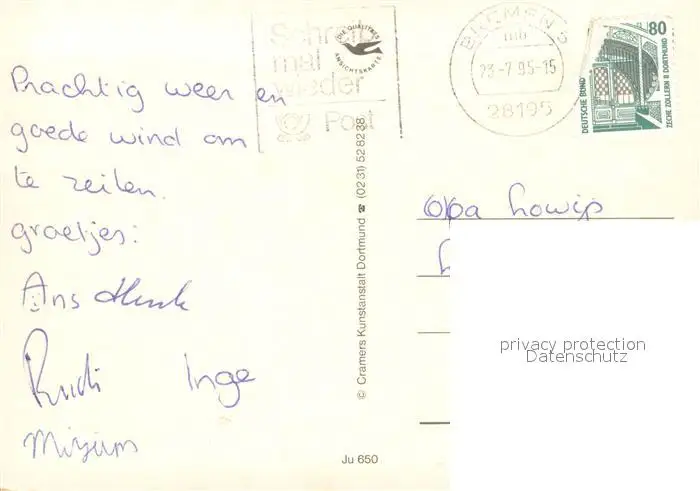 Prachtig weer en
goede wind om
te zeilen.
groetjes:
Ans Henk
Rudi Inge
Mirjam
Schreib
mal
wieder
Post
DIE QUALITÄTS
ANSICHTSKARTE
BREMEN 5
mb
23-7.95-15
28195
80
DEUTSCHE BUND
ZECHE ZOLLERN II DORTMUND
© Cramers Kunstanstalt Dortmund ☎ (02 31) 52 82 38
Ju 650
Opa
privacy protection
Datenschutz